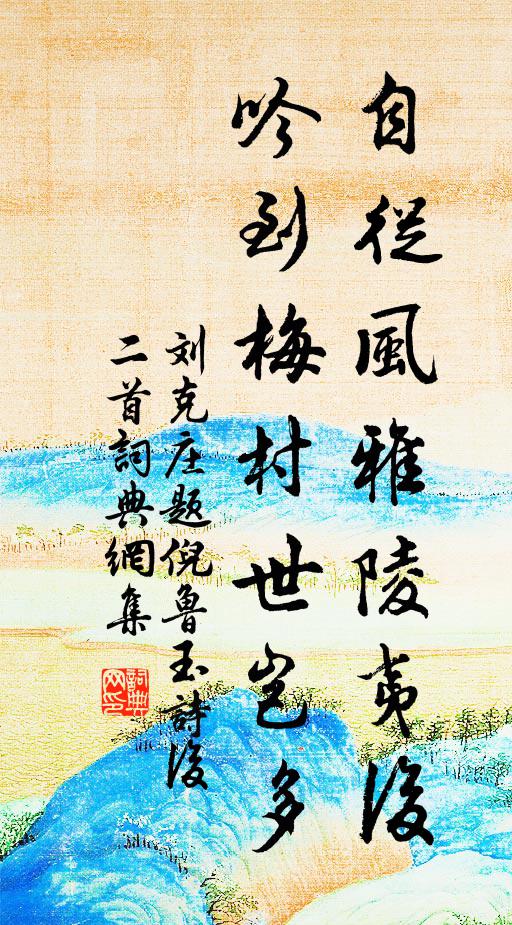 自從風雅陵夷後
吟到梅村世豈多
刘克庄题倪魯玉詩後
二首詞典網集
詞典
网印